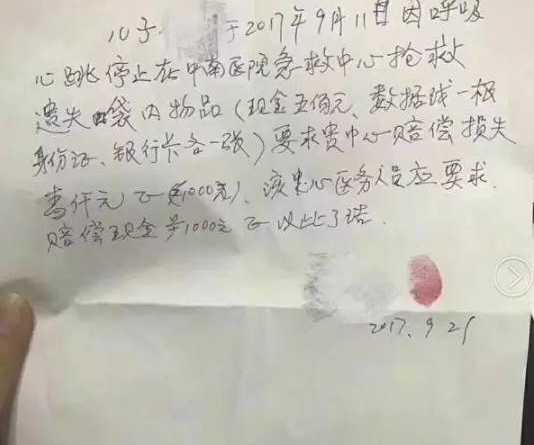 儿子 于2017年9月11日因呼吸
心跳停止在中南医院急救中心抢救
遗失口袋内物品（现金五佰元、数据线一根
身份证、银行卡各一张）要求贵中心赔偿损失
壹仟元正（¥1000元）、该中心医务人员应要求.
赔偿现金¥1000元正 以此了结.
2017.9 21